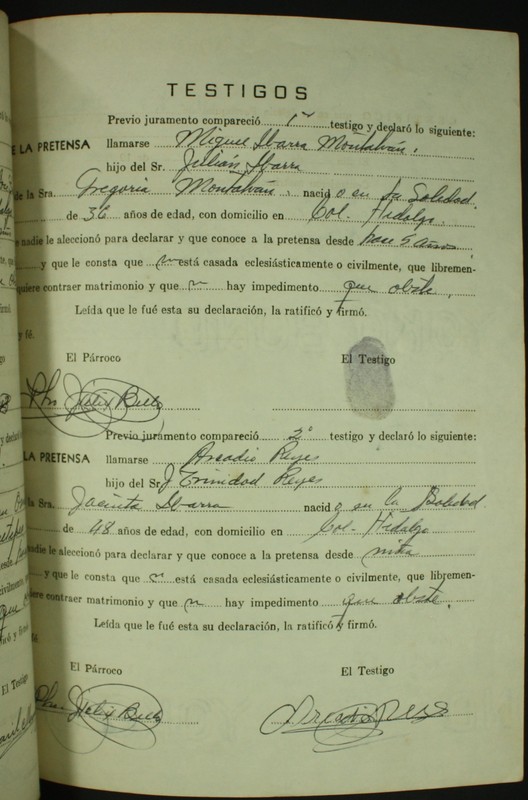 TESTIGOS
Previo juramento compareció 1er testigo y declaró lo siguiente:
E LA PRETENSA llamarse Miguel Ibarra Montalván.
hijo del Sr. Julián Ibarra
de la Sra. Gregoria Montalván nacido en La Soledad.
de 36 años de edad, con domicilio en Col. Hidalgo.
e nadie le aleccionó para declarar y que conoce a la pretensa desde hace 5 años
y que le consta que no está casada eclesiásticamente o civilmente, que libremen-
quiere contraer matrimonio y que no hay impedimento que obste.
Leída que le fué esta su declaración, la ratificó y firmó.
y fé.
El Párroco El Testigo
Previo juramento compareció 2° testigo y declaró lo siguiente:
LA PRETENSA llamarse Arcadio Reyes
hijo del Sr. J Trinidad Reyes
la Sra. Jacinta Ibarra nacido en La Soledad
de 48 años de edad, con domicilio en Col. Hidalgo
nadie le aleccionó para declarar y que conoce a la pretensa desde niña
y que le consta que no está casada eclesiásticamente o civilmente, que libremen-
iere contraer matrimonio y que no hay impedimento que obste.
Leída que le fué esta su declaración, la ratificó y firmó.
fé.
El Párroco El Testigo
Arcadio Reyes